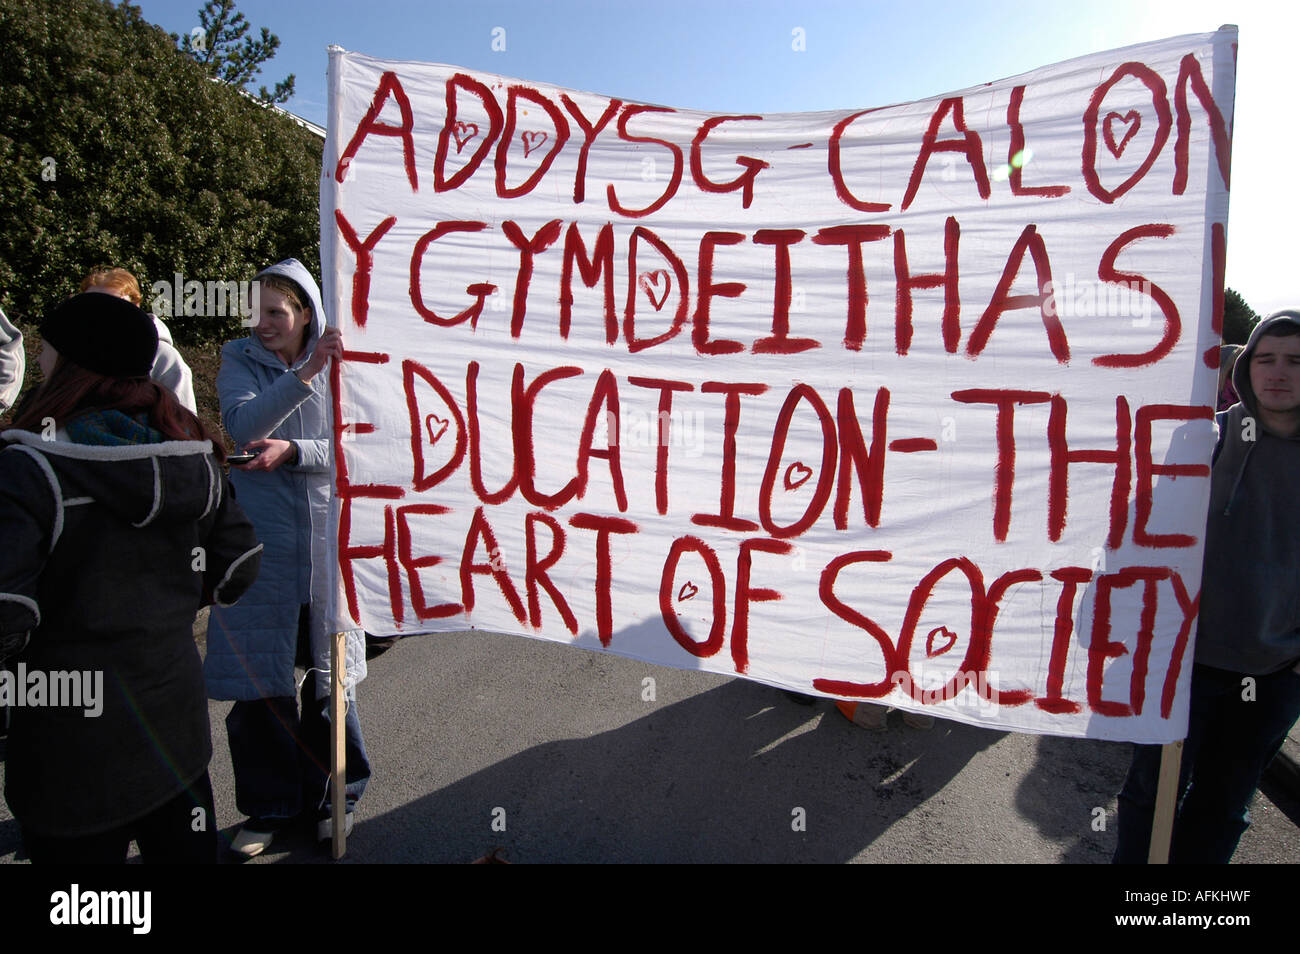 ADDYSG - CALON
Y GYMDEITHAS!
EDUCATION - THE
HEART OF SOCIETY
alamy
Image ID: AFKHWF
www.alamy.com